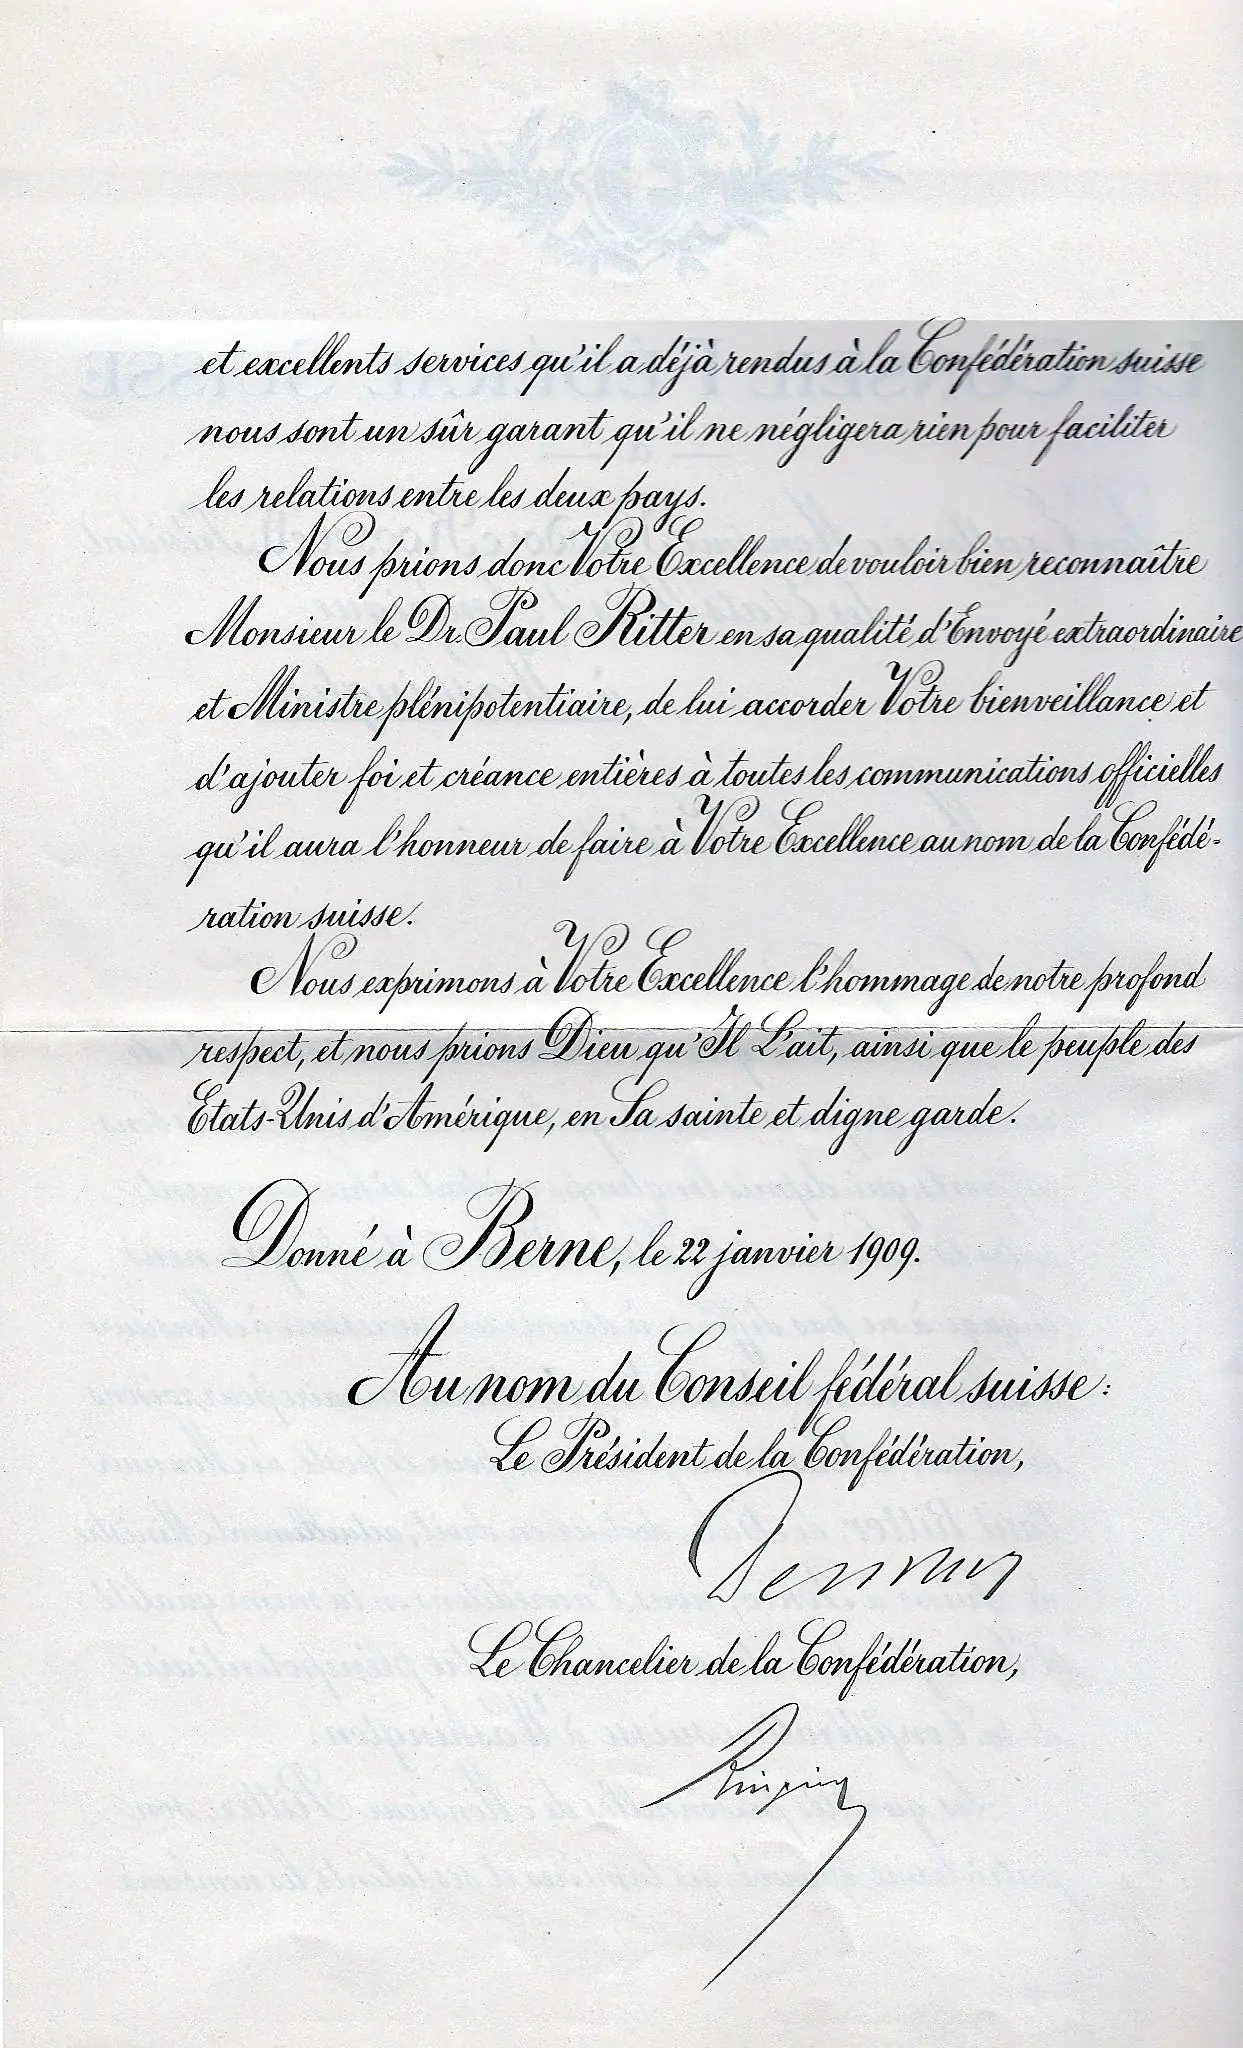 et excellents services qu'il a déjà rendus à la Confédération suisse
nous sont un sûr garant qu'il ne négligera rien pour faciliter
les relations entre les deux pays.
Nous prions donc Votre Excellence de vouloir bien reconnaître
Monsieur le Dr. Paul Ritter en sa qualité d'Envoyé extraordinaire
et Ministre plénipotentiaire, de lui accorder Votre bienveillance et
d'ajouter foi et créance entières à toutes les communications officielles
qu'il aura l'honneur de faire à Votre Excellence au nom de la Confédé-
ration suisse.
Nous exprimons à Votre Excellence l'hommage de notre profond
respect, et nous prions Dieu qu'Il L'ait, ainsi que le peuple des
Etats-Unis d'Amérique, en Sa sainte et digne garde.
Donné à Berne, le 22 janvier 1909.
Au nom du Conseil fédéral suisse:
Le Président de la Confédération,
Le Chancelier de la Confédération,